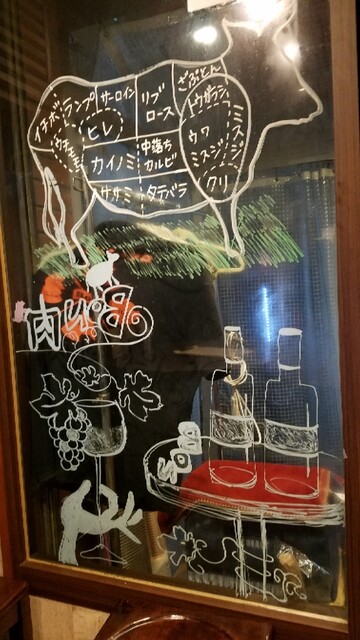 ざぶとん
イチボ
ランプ
サーロイン
リブ
ロース
トウガラシ
ウチモモ
ヒレ
中落ち
カルビ
ウワ
ミスジ
ミスジ
カイノミ
ササミ
タテバラ
クリ
肉